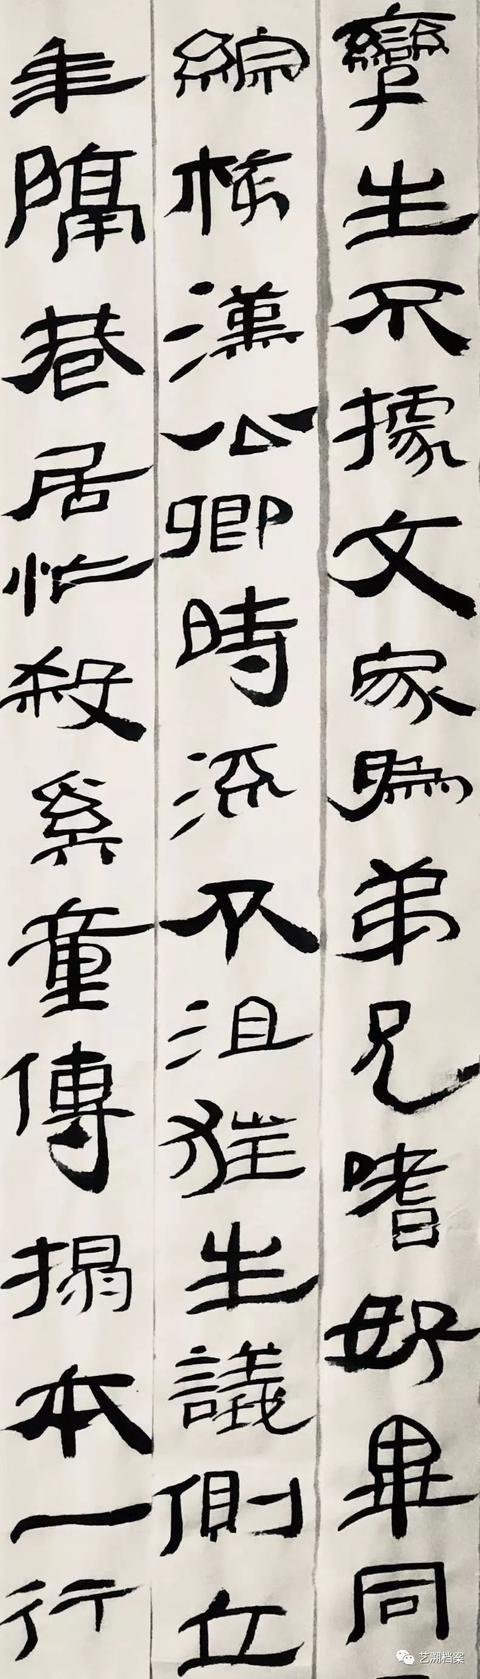 孿生不據文家爲弟兄嗜好畢同
綜核漢公卿時流不沮狂生議側立
年隔巷居忙殺奚童傳搨本一行
艺溯档案